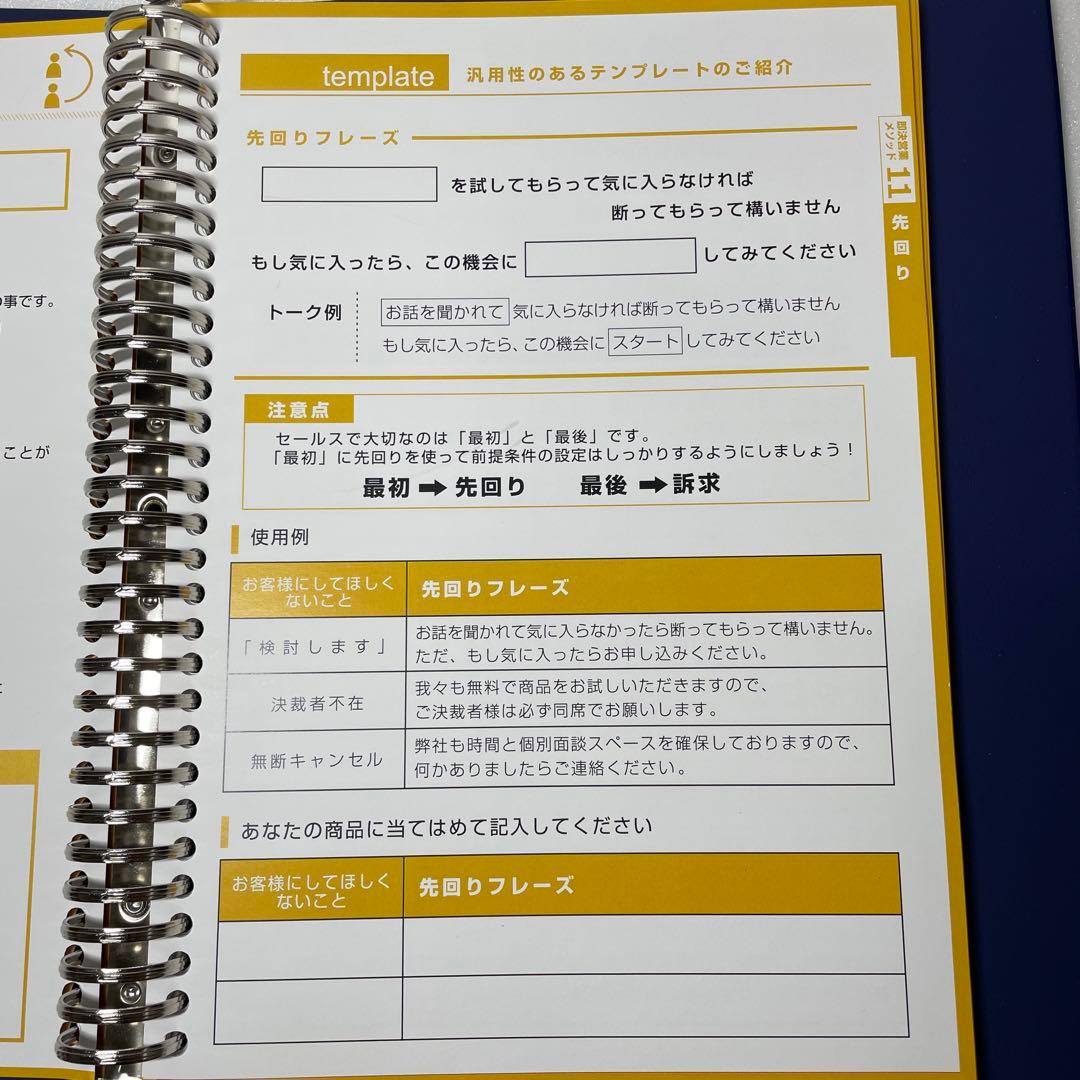 template 汎用性のあるテンプレートのご紹介
先回りフレーズ
を試してもらって気に入らなければ
断ってもらって構いません
もし気に入ったら、この機会に してみてください
トーク例
お話を聞かれて 気に入らなければ断ってもらって構いません
もし気に入ったら、この機会に スタート してみてください
注意点
セールスで大切なのは「最初」と「最後」です。
「最初」に先回りを使って前提条件の設定はしっかりするようにしましょう！
最初 ➡ 先回り 最後 ➡ 訴求
使用例
お客様にしてほしく
ないこと
先回りフレーズ
「検討します」
お話を聞かれて気に入らなかったら断ってもらって構いません。
ただ、もし気に入ったらお申し込みください。
決裁者不在
我々も無料で商品をお試しいただきますので、
ご決裁者様は必ず同席でお願いします。
無断キャンセル
弊社も時間と個別面談スペースを確保しておりますので、
何かありましたらご連絡ください。
あなたの商品に当てはめて記入してください
お客様にしてほしく
ないこと
先回りフレーズ
即決営業
メソッド
11
先回り
の事です。
ことが